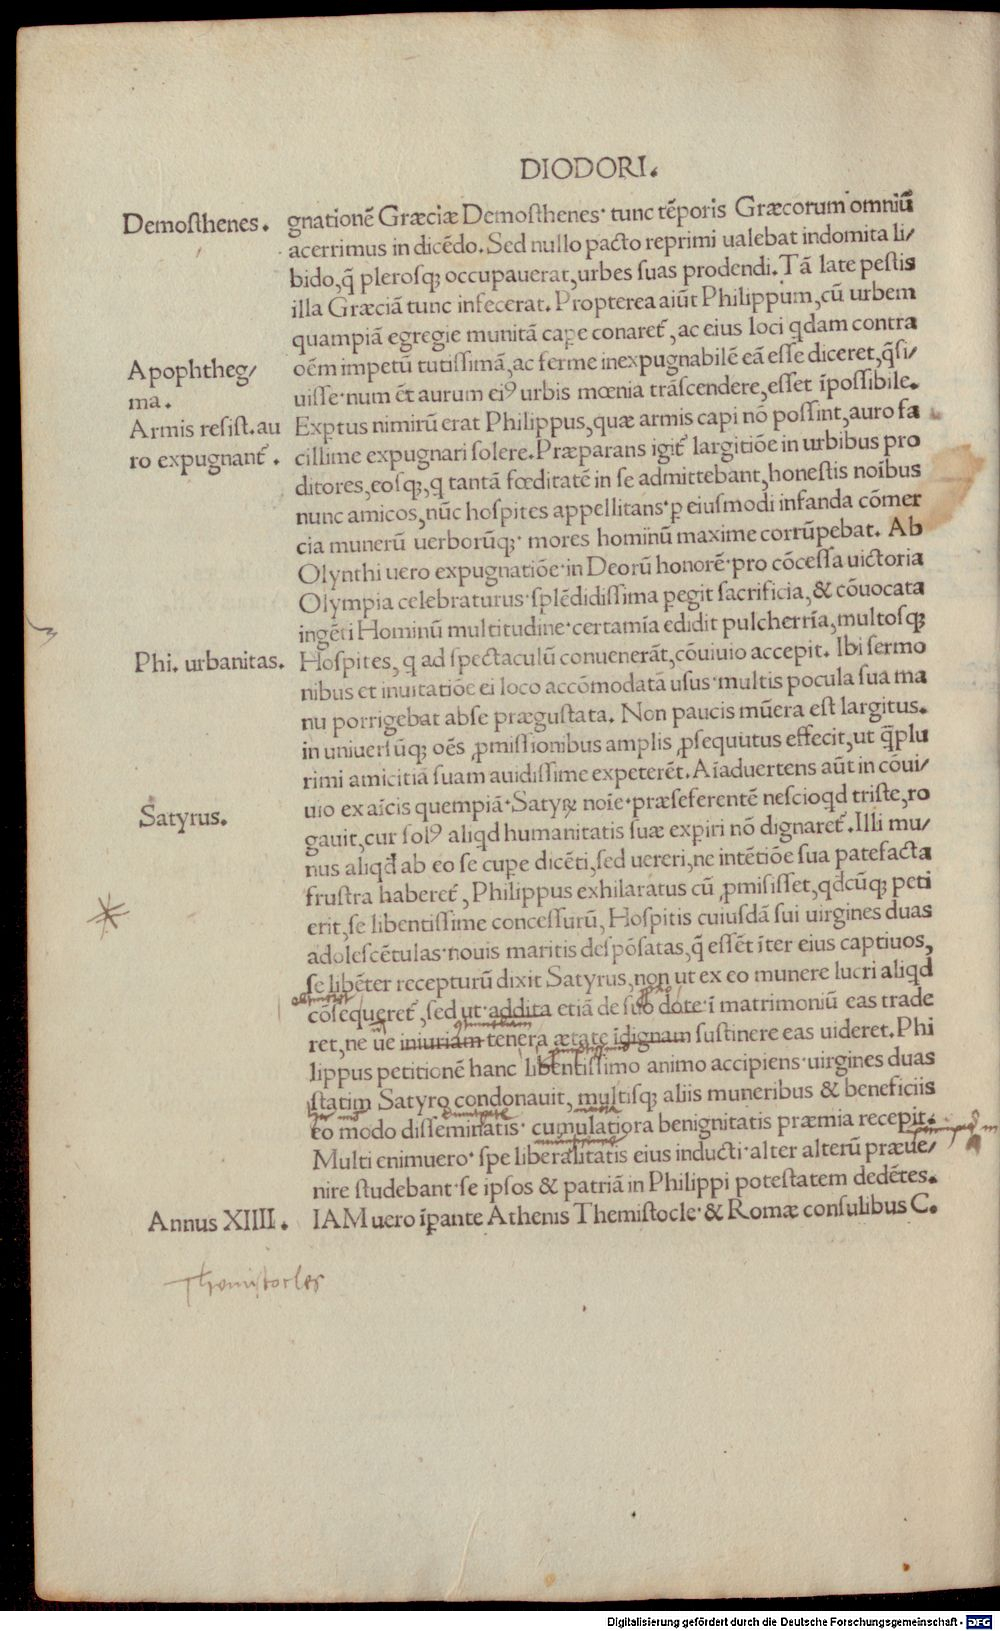 DIODORI.
Demosthenes. gnationē Græciæ Demosthenes· tunc tēporis Græcorum omniū
acerrimus in dicēdo. Sed nullo pacto reprimi ualebat indomita li/
bido, q̄ plerosq; occupauerat, urbes suas prodendi. Tā late pestis
illa Græciā tunc infecerat. Propterea aiūt Philippum, cū urbem
quampiā egregie munitā cape conaret̄, ac eius loci qdam contra
Apophtheg/ oēm impetū tutissimā, ac ferme inexpugnabilē eā esse diceret, q̄si/
ma. uisse· num ēt aurum ei⁹ urbis mœnia trāscendere, esset īpossibile.
Armis resist. au Exptus nimirū erat Philippus, quæ armis capi nō possint, auro fa
ro expugnant̄. cillime expugnari solere. Præparans igit̄ largitiōe in urbibus pro
ditores, eosq;, q tantā fœditatē in se admittebant, honestis noībus
nunc amicos, nūc hospites appellitans· p eiusmodi infanda cōmer
cia munerū uerborūq;· mores hominū maxime corrūpebat. Ab
Olynthi uero expugnatiōe· in Deorū honorē· pro cōcessa uictoria
Olympia celebraturus· splēdidissima pegit sacrificia, & cōuocata
ingēti Hominū multitudine· certamīa edidit pulcherrīa, multosq;
Phi. urbanitas. Hospites, q ad spectaculū conuenerāt, cōuiuio accepit. Ibi sermo
nibus et inuitatiōe ei loco accōmodatā usus· multis pocula sua ma
nu porrigebat abse prægustata. Non paucis mūera est largitus.
in uniuersūq; oēs ꝓmissionibus amplis ꝓsequutus effecit, ut q̄plu
rimi amicitiā suam auidissime expeterēt. Aīaduertens aūt in cōui/
uio ex aīcis quempiā· Satyꝝ noīe· præseferentē nescioqd triste, ro
Satyrus. gauit, cur sol⁹ aliqd humanitatis suæ expiri nō dignaret̄. Illi mu/
nus aliqd ab eo se cupe dicēti, sed uereri, ne intētiōe sua patefacta
frustra haberet̄, Philippus exhilaratus cū ꝓmisisset, qdcūq; peti
erit, se libentissime concessurū, Hospitis cuiusdā sui uirgines duas
adolescētulas· nouis maritis despōsatas, q̄ essēt īter eius captiuos,
se libēter recepturū dixit Satyrus, non ut ex eo munere lucri aliqd
cōsequeret̄, sed ut· addita etiā de suo dote· ī matrimoniū eas trade
ret, ne ue iniuriam tenera ætate īdignam sustinere eas uideret. Phi
lippus petitionē hanc libentissimo animo accipiens· uirgines duas
statim Satyro condonauit, multisq; aliis muneribus & beneficiis
eo modo disseminatis· cumulatiora benignitatis præmia recepit.
Multi enimuero· spe liberalitatis eius inducti· alter alterū præue/
nire studebant· se ipsos & patriā in Philippi potestatem dedētes.
Annus XIIII. IAM uero īpante Athenis Themistocle· & Romæ consulibus C.
Themistocles
Digitalisierung gefördert durch die Deutsche Forschungsgemeinschaft - DFG